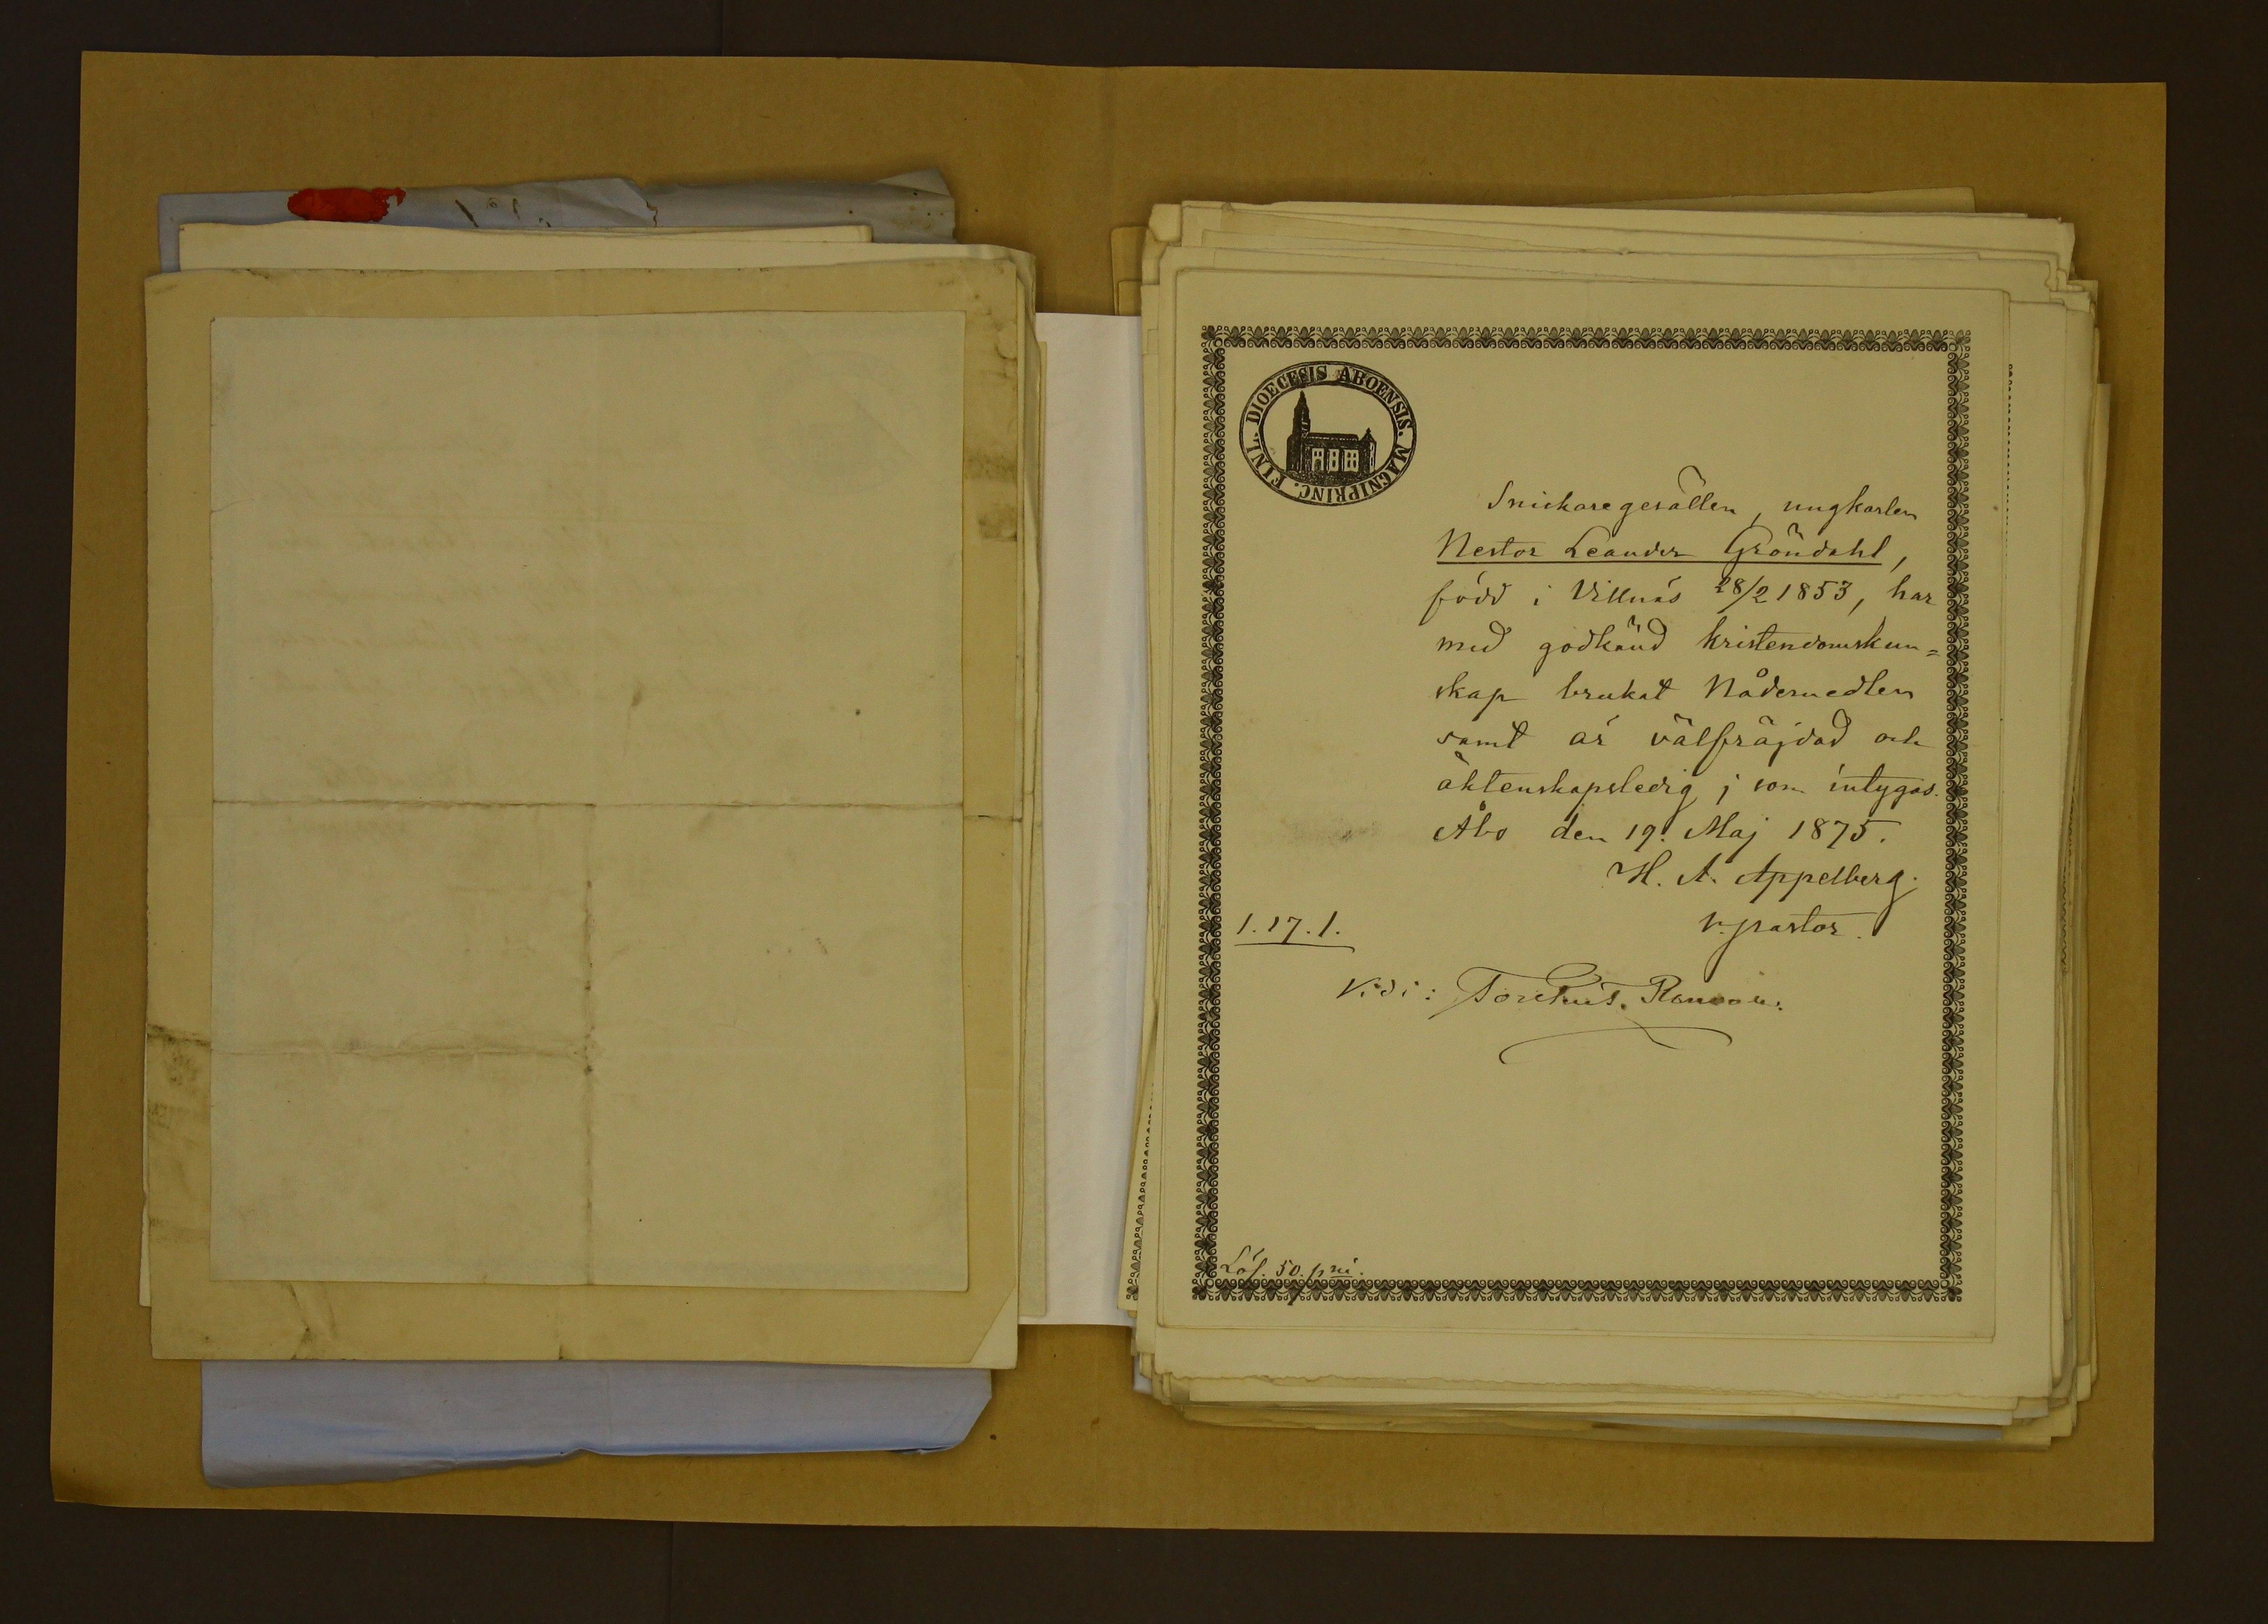 DIOECESIS ABOENSIS. MAGNIPRINC. FINL.
Snickaregesällen, ungkarlen
Nestor Leander Gröndahl,
född i Villnäs 28/2 1853, har
med godkänd kristendomskun=
skap brukat Nådemedlen
samt är välfräjdad och
äktenskapsledig; som intygas.
Åbo den 19. Maj 1875.
H. A. Appelberg.
v. pastor.
1.17.1.
Vidi:
Lös. 50. pni.